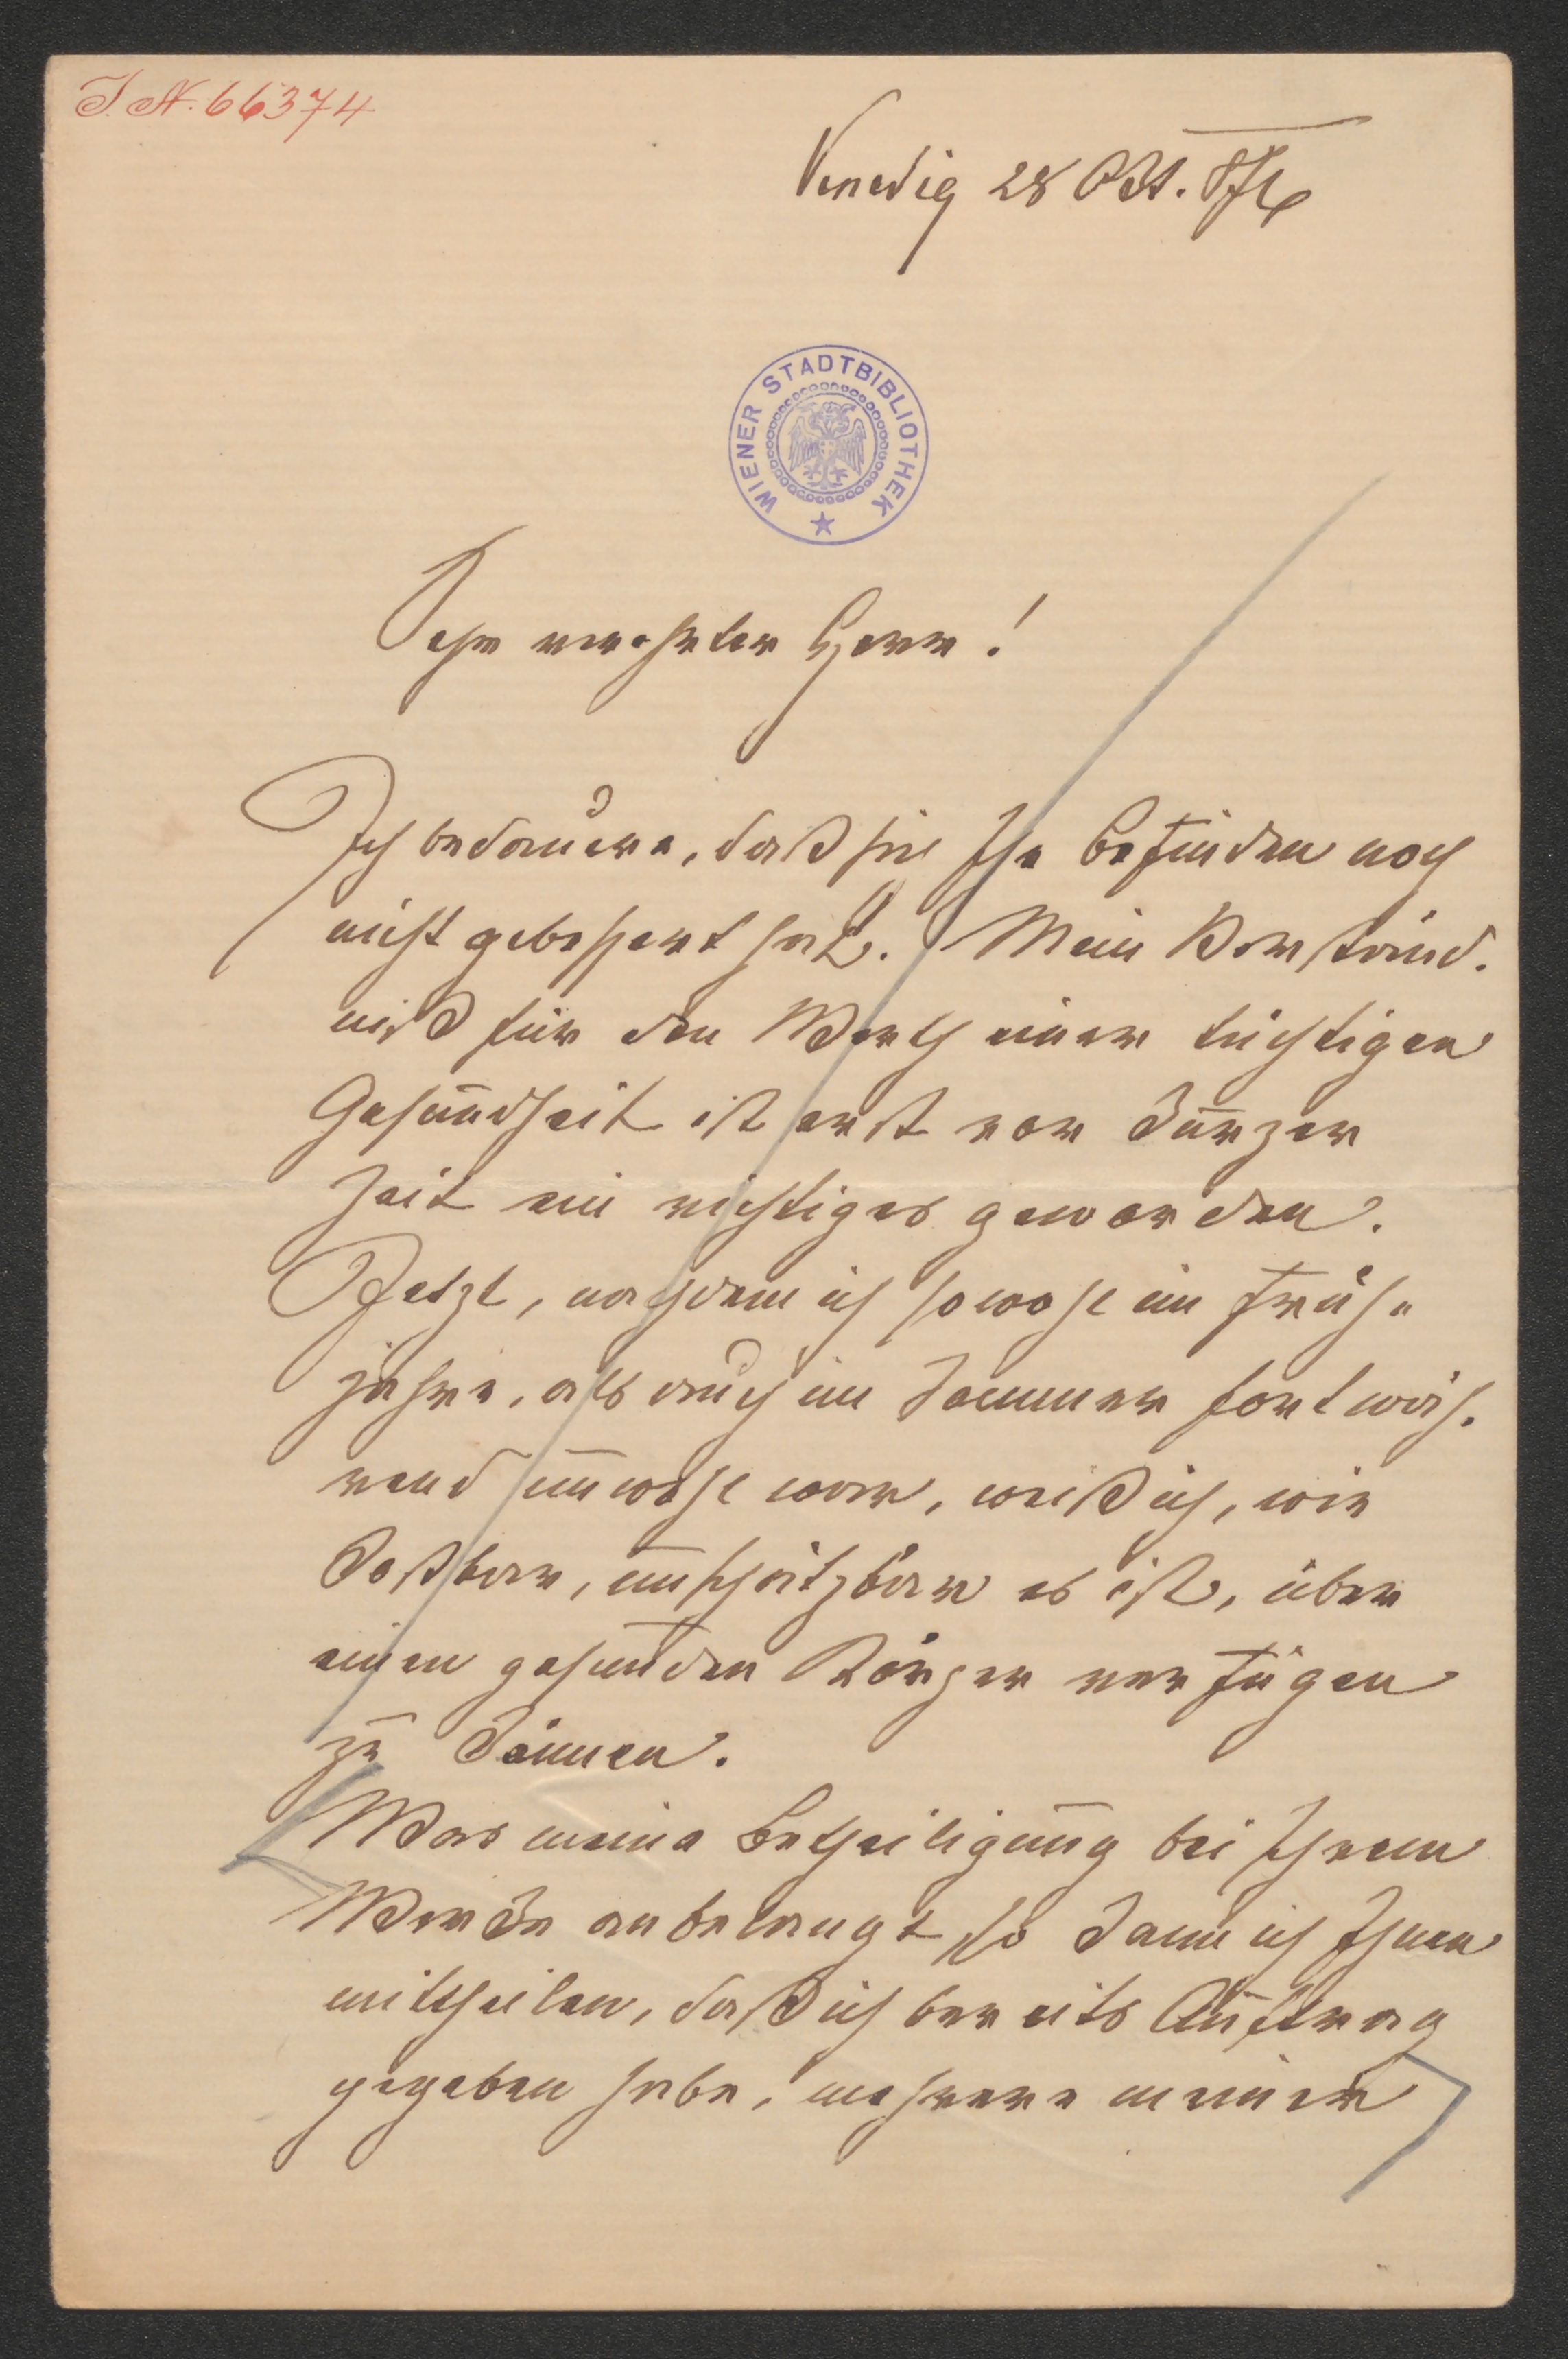 I. N. 66374
Venedig 28 Okt.
WIENER STADTBIBLIOTHEK
Sehr verehrter Herr!
Ich bedauere, daß sich Ihr Befinden noch
nicht gebessert hat. Mein Verständ-
niß für den Werth einer tüchtigen
Gesundheit ist erst vor kurzer
Zeit ein richtiges geworden.
Jetzt, nachdem ich sowohl im Früh-
jahre, als auch im Sommer fortwäh-
rend unwohl war, weiß ich, wie
kostbar, unschätzbar es ist, über
einen gesunden Körper verfügen
zu können.
Was meine Betheiligung bei Ihrem
Werke anbelangt, so kann ich Ihnen
mittheilen, daß ich bereits Auftrag
gegeben habe, mehrere meiner